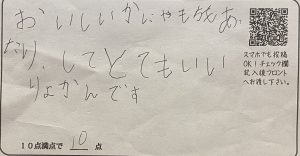 おいしいかにやもあ
たり、してとてもいい
りょかんです
スマホでも投稿
OK！チェック欄
記入後フロント
へお渡し下さい。
10点満点で 10 点